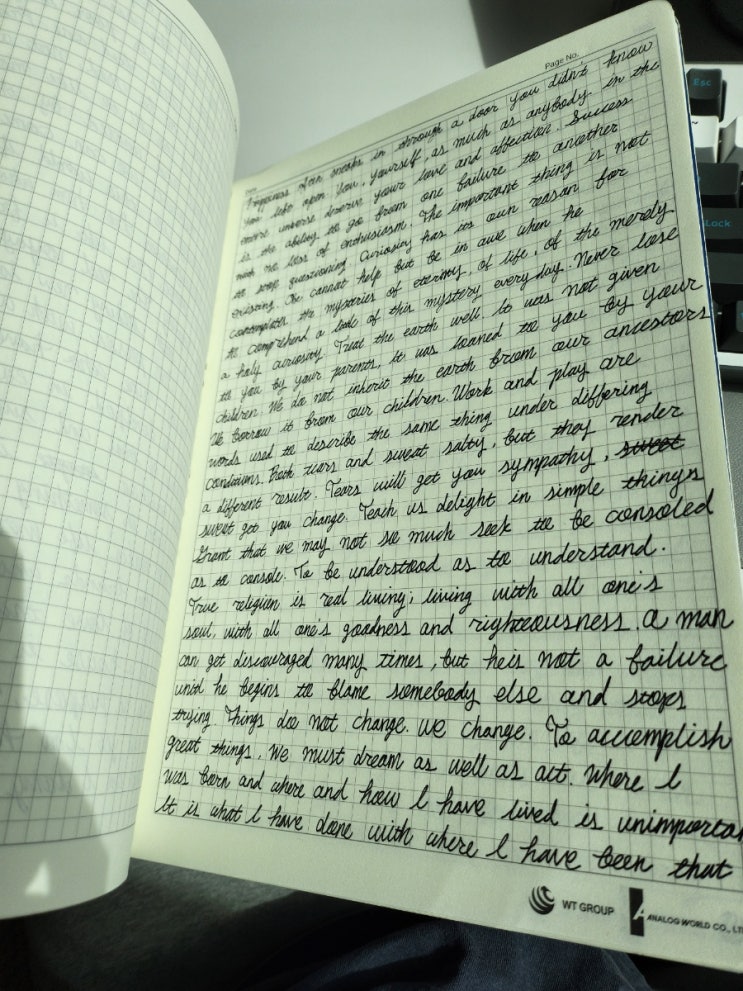 Page No.
Happiness often sneaks in through a door you didn't know
you left open. You, yourself, as much as anybody in the
entire universe deserve your love and affection. Success
is the ability to go from one failure to another
with no loss of enthusiasm. The important thing is not
to stop questioning. Curiosity has its own reason for
existing. One cannot help but be in awe when he
contemplates the mysteries of eternity, of life, of the merely
to comprehend a little of this mystery every day. Never lose
a holy curiosity. Treat the earth well. It was not given
to you by your parents, It was loaned to you by your
children. We do not inherit the earth from our ancestors
We borrow it from our children. Work and play are
words used to describe the same thing under differing
conditions. Both tears and sweat salty, but they render
a different result. Tears will get you sympathy, sweet
sweat get you change. Teach us delight in simple things
Grant that we may not so much seek to be consoled
as to console. To be understood as to understand.
True religion is real living; living with all one's
soul, with all one's goodness and righteousness. a man
can get discouraged many times, but he is not a failure
until he begins to blame somebody else and stops
trying. Things doe not change. we change. To accomplish
great things. We must dream as well as act. Where I
was born and where and how I have lived is unimportan
It is what I have done with where I have been that
WT GROUP
ANALOG WORLD CO., LT
Esc
~
Lock